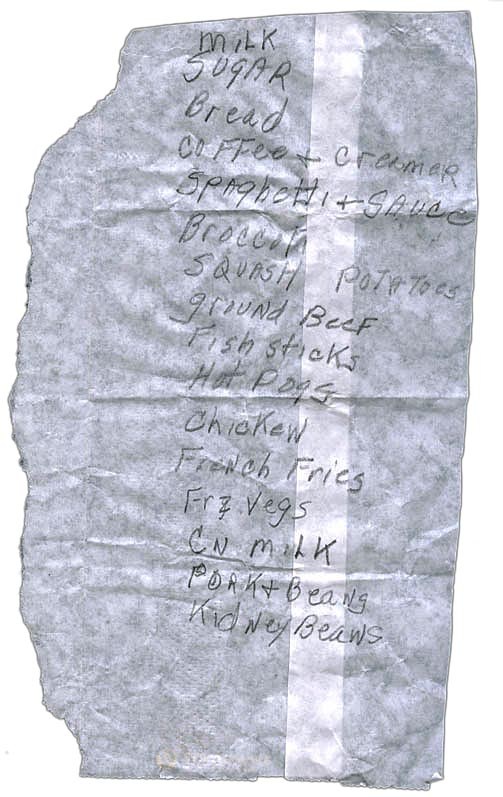 milk
SUGAR
Bread
coffee + creamer
Spaghetti + SAUCE
Broccoli
SQUASH POTATOES
ground Beef
Fish sticks
Hot Dogs
Chicken
French Fries
Frz Vegs
CN milk
PORK + Beans
Kidney Beans